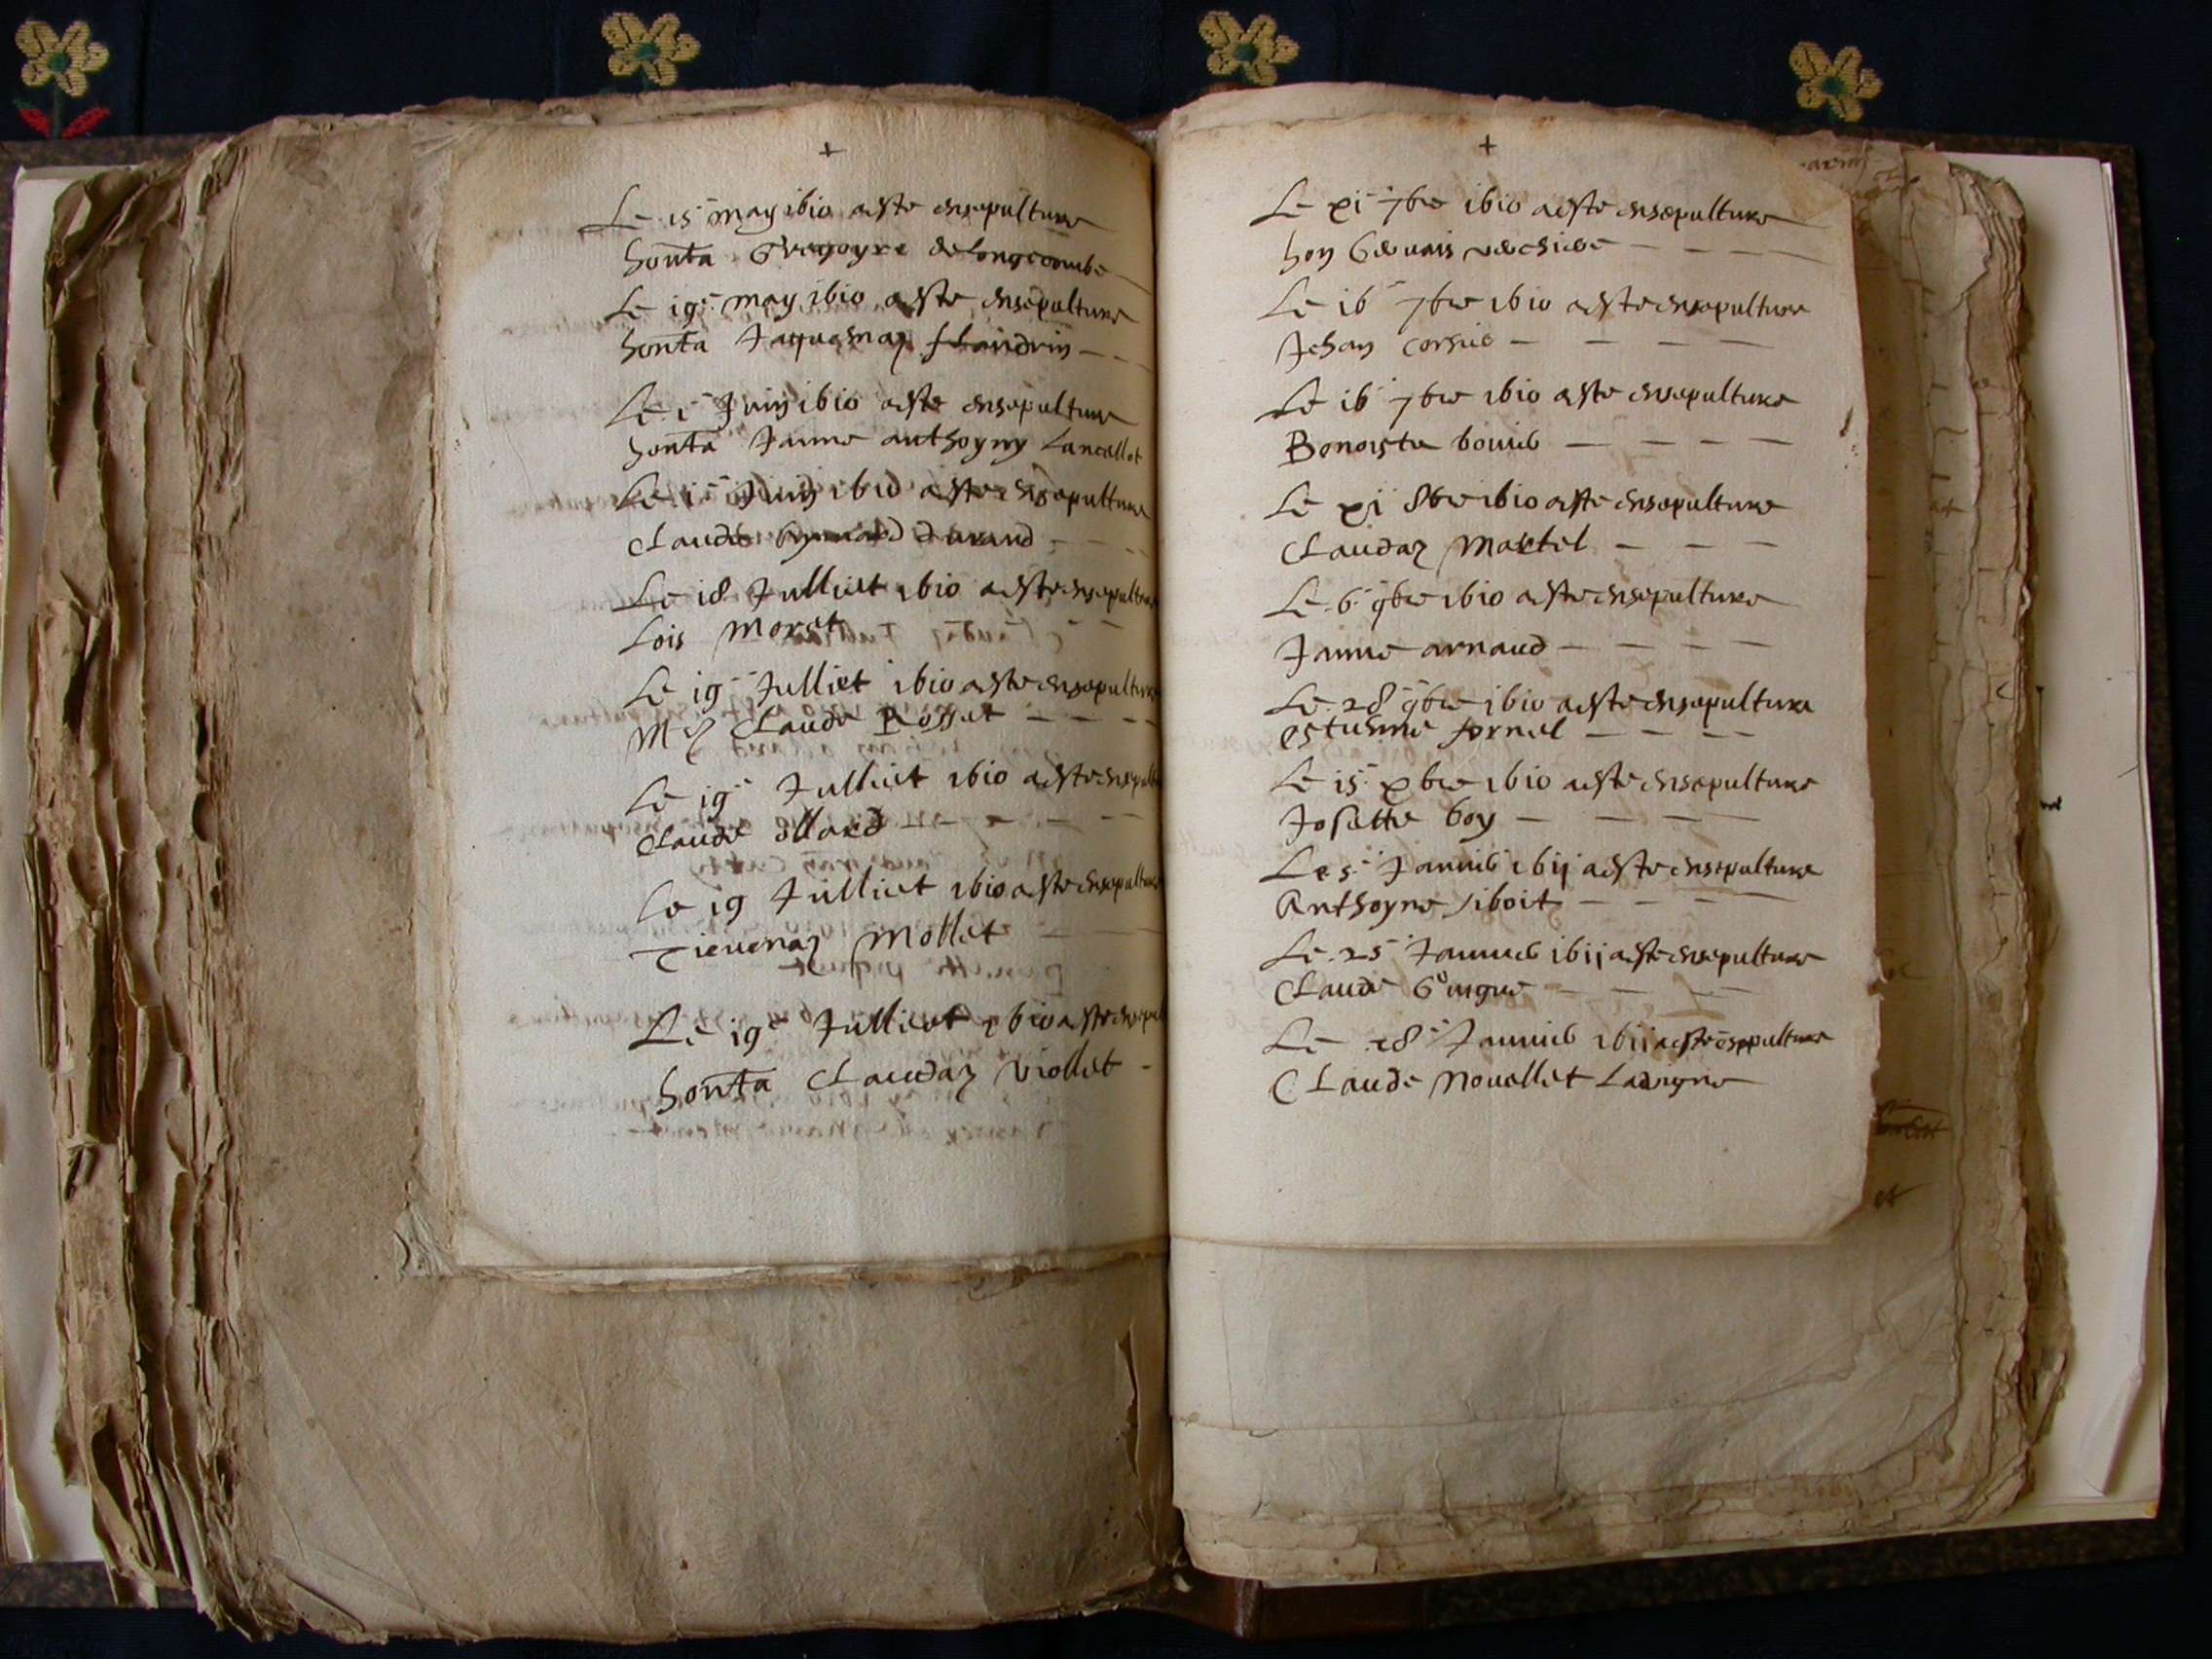 +
Le 15e may 1610 a este ensepulture
honta Gregoyre de Longecombe
Le 19e may 1610 a este ensepulture
honta Jaquemaz flandrin
Le 1e Juin 1610 a este ensepulture
honta Janne anthoyny Lancellot
Le 1e Juin 1610 a este ensepulture
Claude durand
Le 18 Julliet 1610 a este ensepulture
Lois Moret
Le 19e Julliet 1610 a este ensepulture
Claude Rosset
Le 19e Julliet 1610 a este ensepult
Claude ollard
Le 19 Julliet 1610 a este ensepulture
Tievenaz Mollet
Le 19e Julliet 1610 a este ensepul
honta Claudaz Viollet
+
Le xi 7bre 1610 a este ensepulture
hon Gervais
Le 16 7bre 1610 a este ensepulture
Jehan cornie
Le 16 7bre 1610 a este ensepulture
Benoiste bonier
Le xi 8bre 1610 a este ensepulture
Claudaz Martel
Le 6 9bre 1610 a este ensepulture
Janne arnaud
Le 28 9bre 1610 a este ensepulture
estienne fornel
Le 15 xbre 1610 a este ensepulture
Josette boy
Le 5 Janvier 1611 a este ensepulture
Anthoyne siboit
Le 25 Janvier 1611 a este ensepulture
Claude Guigue
Le 28 Janvier 1611 a este esepulture
Claude Novellet Lavigne